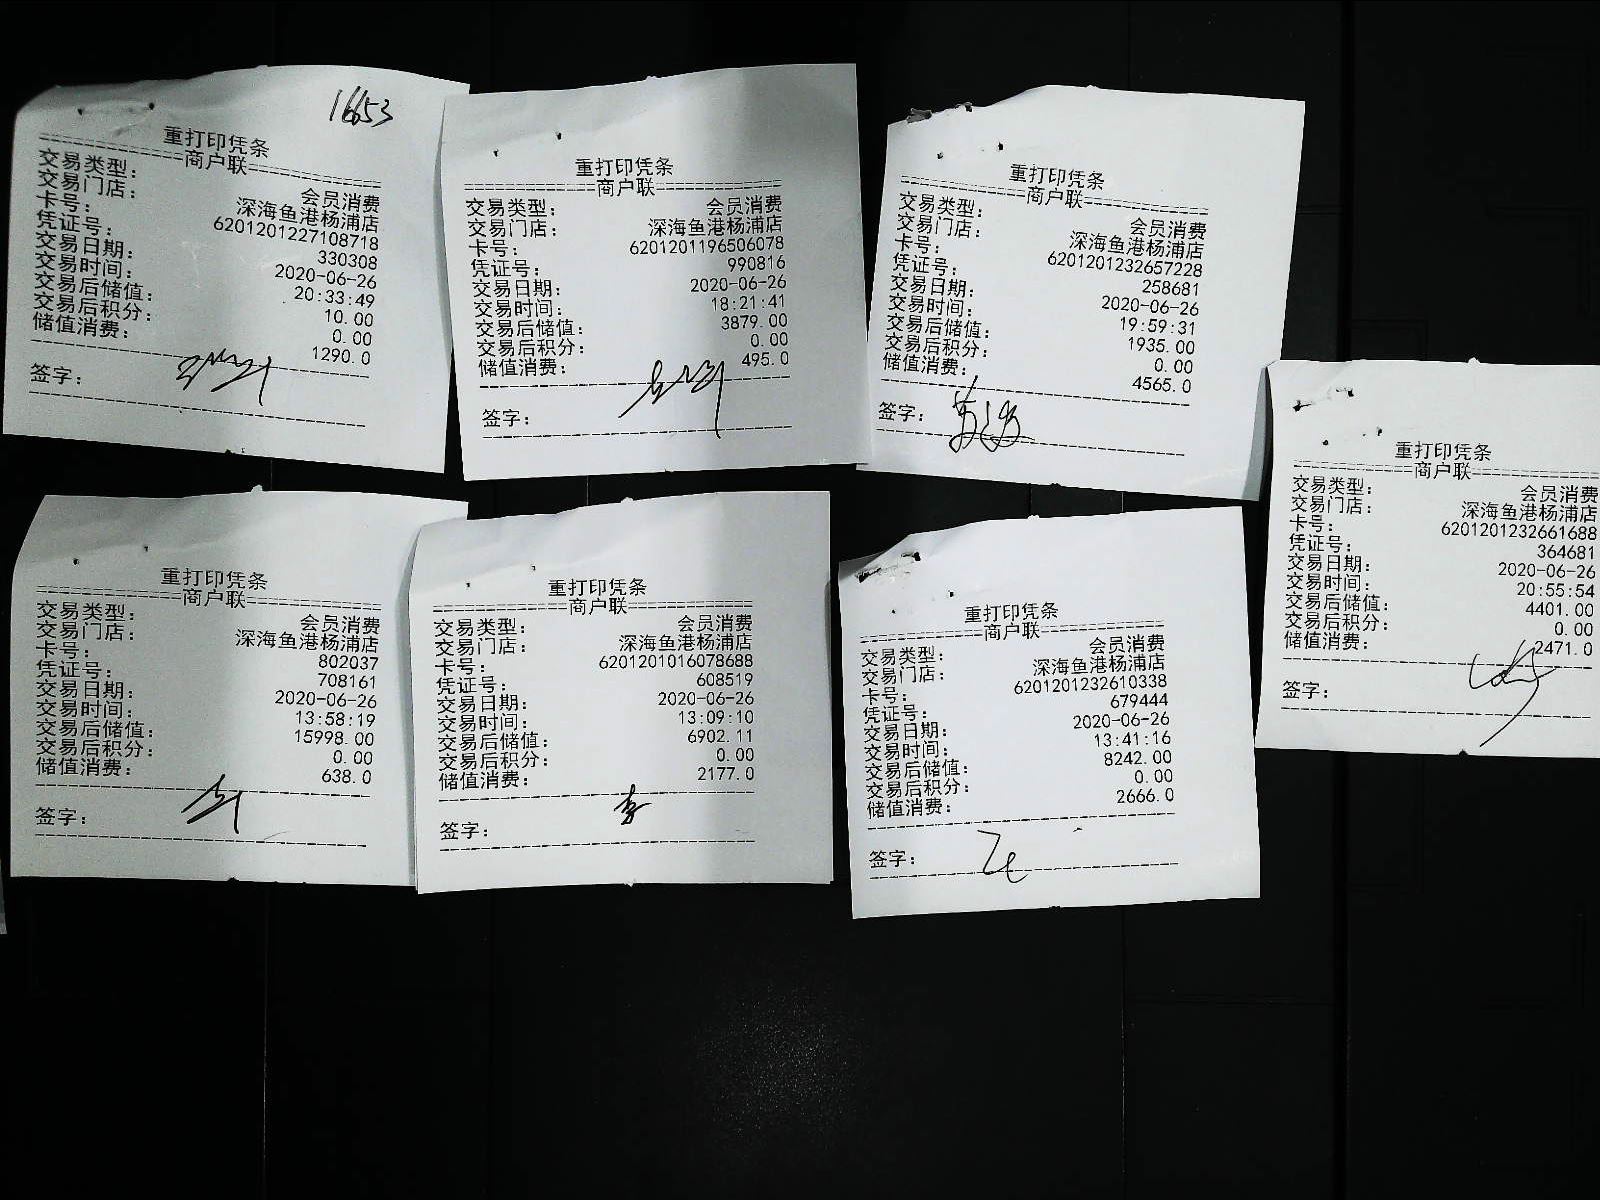 16653
重打印凭条
商户联
交易类型： 会员消费
交易门店： 深海鱼港杨浦店
卡号： 6201201227108718
凭证号： 330308
交易日期： 2020-06-26
交易时间： 20:33:49
交易后储值： 10.00
交易后积分： 0.00
储值消费： 1290.0
签字：
重打印凭条
商户联
交易类型： 会员消费
交易门店： 深海鱼港杨浦店
卡号： 6201201196506078
凭证号： 990816
交易日期： 2020-06-26
交易时间： 18:21:41
交易后储值： 3879.00
交易后积分： 0.00
储值消费： 495.0
签字：
重打印凭条
商户联
交易类型： 会员消费
交易门店： 深海鱼港杨浦店
卡号： 6201201232657228
凭证号： 258681
交易日期： 2020-06-26
交易时间： 19:59:31
交易后储值： 1935.00
交易后积分： 0.00
储值消费： 4565.0
签字：
重打印凭条
商户联
交易类型： 会员消费
交易门店： 深海鱼港杨浦店
卡号： 6201201232661688
凭证号： 364681
交易日期： 2020-06-26
交易时间： 20:55:54
交易后储值： 4401.00
交易后积分： 0.00
储值消费： 2471.0
签字：
重打印凭条
商户联
交易类型： 会员消费
交易门店： 深海鱼港杨浦店
卡号： 802037
凭证号： 708161
交易日期： 2020-06-26
交易时间： 13:58:19
交易后储值： 15998.00
交易后积分： 0.00
储值消费： 638.0
签字：
重打印凭条
商户联
交易类型： 会员消费
交易门店： 深海鱼港杨浦店
卡号： 6201201016078688
凭证号： 608519
交易日期： 2020-06-26
交易时间： 13:09:10
交易后储值： 6902.11
交易后积分： 0.00
储值消费： 2177.0
签字： 李
重打印凭条
商户联
交易类型： 会员消费
交易门店： 深海鱼港杨浦店
卡号： 6201201232610338
凭证号： 679444
交易日期： 2020-06-26
交易时间： 13:41:16
交易后储值： 8242.00
交易后积分： 0.00
储值消费： 2666.0
签字：